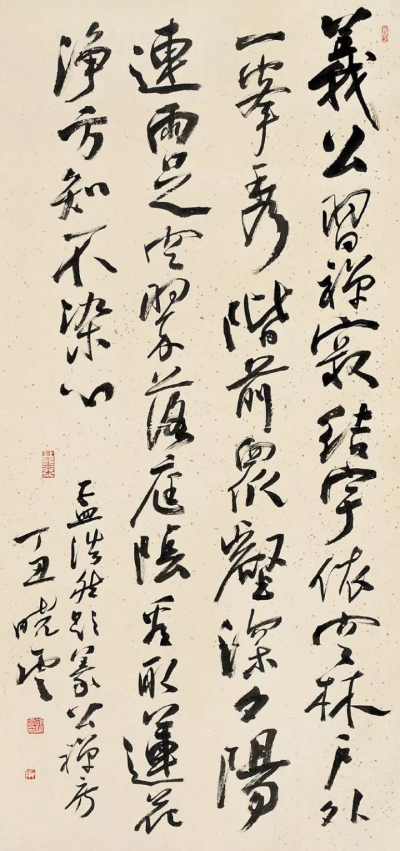 義公習禅寂結宇依空林戶外
一峯秀階前眾壑深夕陽
連雨足空翠落庭陰看取蓮花
淨方知不染心
孟浩然題義公禅房
丁丑曉雲